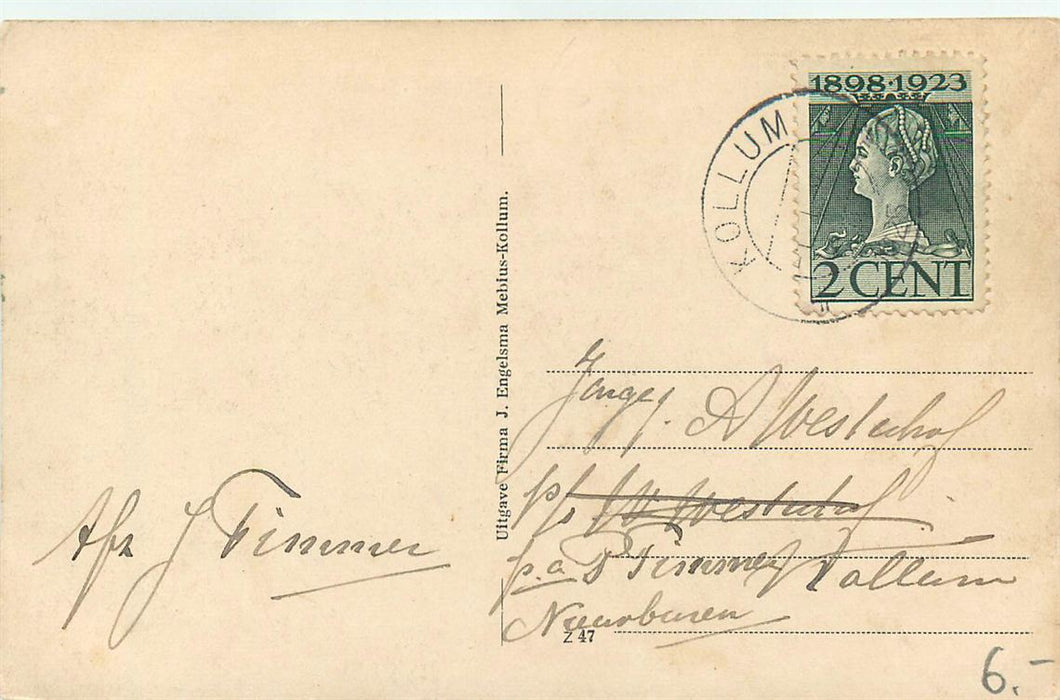 1898·1923
KOLLUM
2 CENT
Uitgave Firma J. Engelsma Mebius-Kollum.
A Westerhof
p/a W Westerhof
p.a P Timmer Kollum
Afz J Timmer
Z 47
6.-